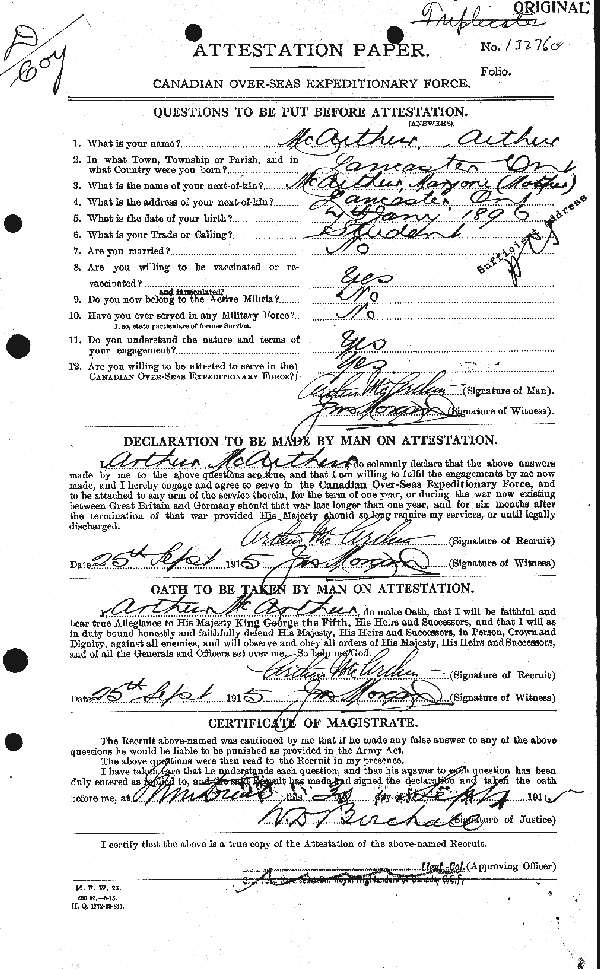 ORIGINAL
Triplicate
ATTESTATION PAPER.
No.
Folio.
CANADIAN OVER-SEAS EXPEDITIONARY FORCE.
QUESTIONS TO BE PUT BEFORE ATTESTATION.
(ANSWERS).
1. What is your name? McArthur, Arthur
2. In what Town, Township or Parish, and in
what Country were you born? Lancaster Ont
3. What is the name of your next-of-kin? McArthur, Marjorie (Mother)
4. What is the address of your next-of-kin? Lancaster Ont
Sufficient address
5. What is the date of your birth? 4 Jany. 1896
6. What is your Trade or Calling? Student
7. Are you married? No
8. Are you willing to be vaccinated or re-
vaccinated? Yes
and inoculated?
9. Do you now belong to the Active Militia? No
10. Have you ever served in any Military Force? No
If so, state particulars of former Service.
11. Do you understand the nature and terms of
your engagement? Yes
12. Are you willing to be attested to serve in the Yes
CANADIAN OVER-SEAS EXPEDITIONARY FORCE?
Arthur McArthur (Signature of Man).
Jno Morgan (Signature of Witness).
DECLARATION TO BE MADE BY MAN ON ATTESTATION.
I, Arthur McArthur, do solemnly declare that the above answers
made by me to the above questions are true, and that I am willing to fulfil the engagements by me now
made, and I hereby engage and agree to serve in the Canadian Over-Seas Expeditionary Force, and
to be attached to any arm of the service therein, for the term of one year, or during the war now existing
between Great Britain and Germany should that war last longer than one year, and for six months after
the termination of that war provided His Majesty should so long require my services, or until legally
discharged.
Arthur McArthur (Signature of Recruit)
Date 25th Sept 1915 Jno Morgan (Signature of Witness)
OATH TO BE TAKEN BY MAN ON ATTESTATION.
I, Arthur McArthur, do make Oath, that I will be faithful and
bear true Allegiance to His Majesty King George the Fifth, His Heirs and Successors, and that I will as
in duty bound honestly and faithfully defend His Majesty, His Heirs and Successors, in Person, Crown and
Dignity, against all enemies, and will observe and obey all orders of His Majesty, His Heirs and Successors,
and of all the Generals and Officers set over me. So help me God.
Arthur McArthur (Signature of Recruit)
Date 25th Sept 1915 Jno Morgan (Signature of Witness)
CERTIFICATE OF MAGISTRATE.
The Recruit above-named was cautioned by me that if he made any false answer to any of the above
questions he would be liable to be punished as provided in the Army Act.
The above questions were then read to the Recruit in my presence.
I have taken care that he understands each question, and that his answer to each question has been
duly entered as replied to, and the said Recruit has made and signed the declaration and taken the oath
before me, at this day of Sept 191
(Signature of Justice)
I certify that the above is a true copy of the Attestation of the above-named Recruit.
Lieut-Col. (Approving Officer)
M. F. W. 23.
H. Q. 1772-39-831.